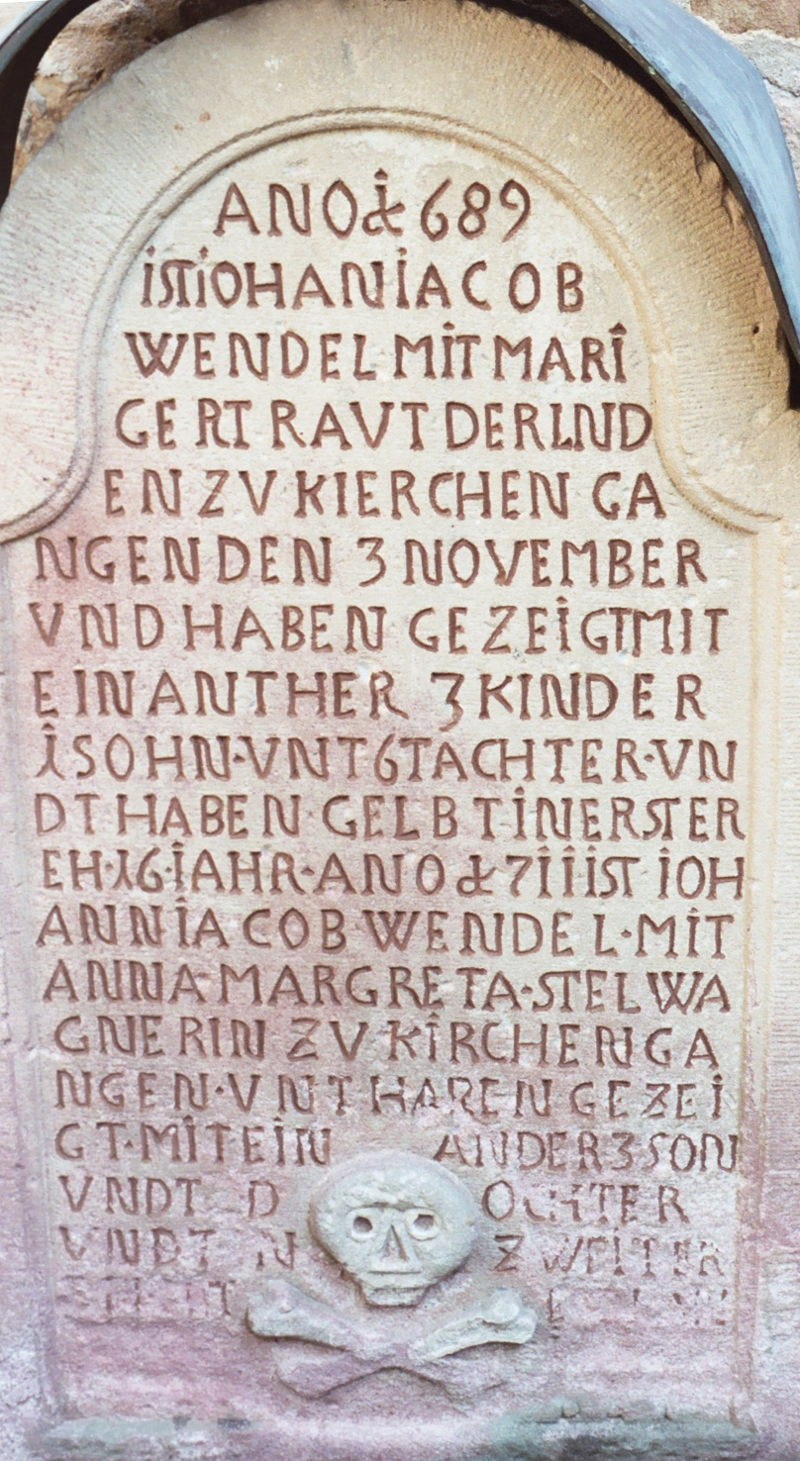 ANO 1689
iSTiOHANiACOB
WENDEL MiT MARi
GERTRAVT DERLND
EN ZV KIERCHEN GA
NGEN DEN 3 NOVEMBER
VND HABEN GEZEiGT MIT
EIN ANTHER 7 KINDER
1 SOHN·VNT 6 TACHTER·VN
DT HABEN GELBT iN ERSTER
EH·16·iAHR·ANO 1711 iST iOH
ANN iACOB WENDEL·MiT
ANNA MARGRETA·STELWA
GNERIN ZV KiRCHEN GA
NGEN·VNT HABEN GEZEi
GT·MiT EiN ANDER 3 SON
VNDT D OCHTER
VNDT ZWEITER